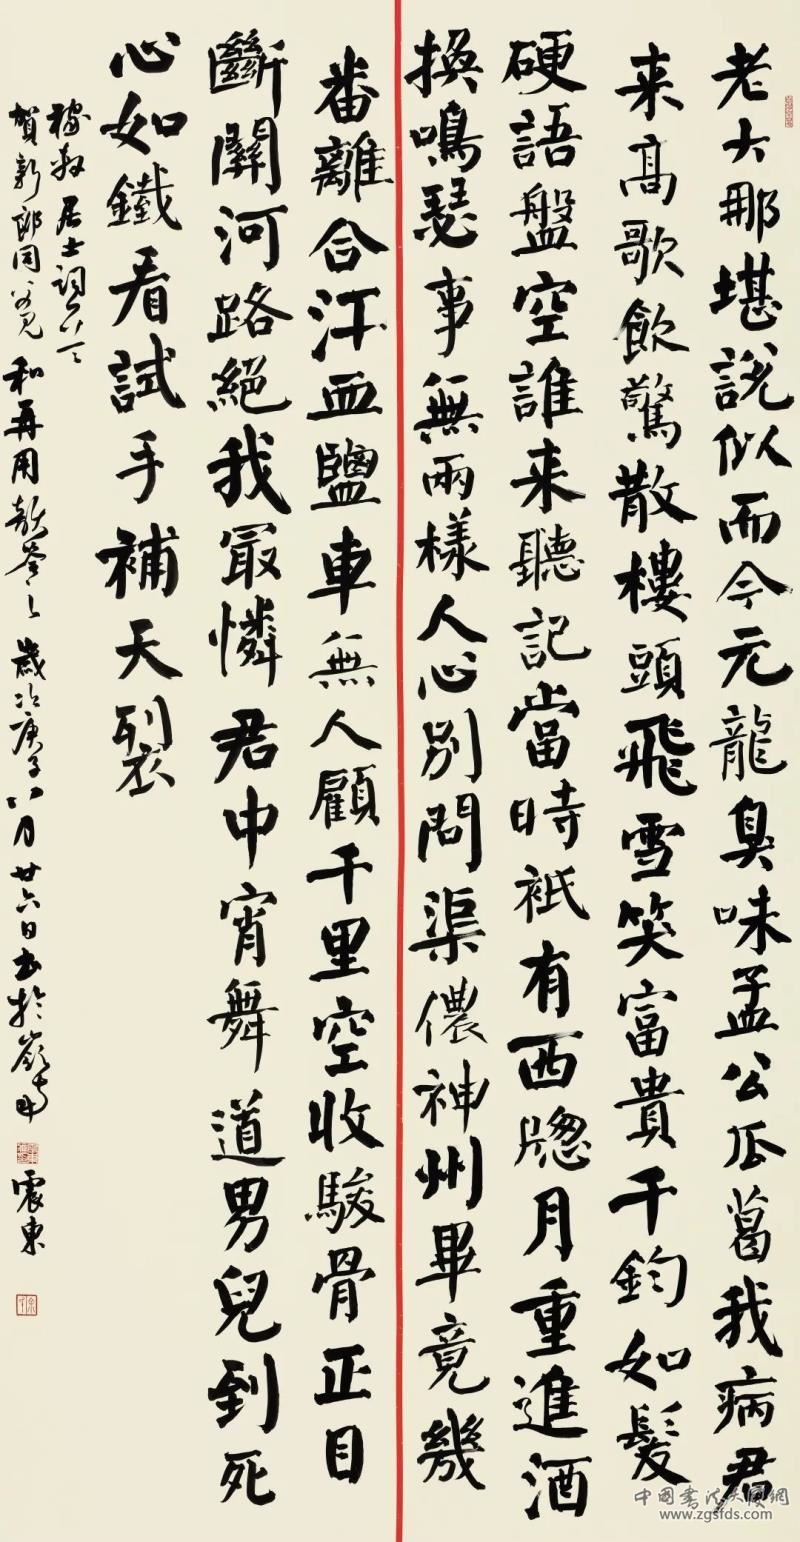 老大那堪說似而今元龍臭味孟公瓜葛我病君
来高歌飲驚散樓頭飛雪笑富貴千鈞如髮
硬語盤空誰来聽記當時衹有西牕月重進酒
換鳴瑟事無兩樣人心別問渠儂神州畢竟幾
番離合汗血鹽車無人顧千里空收駿骨正目
斷關河路絕我最憐君中宵舞道男兒到死
心如鐵看試手補天裂
稼軒居士詞
賀新郎同父見和再用韻答之歲次庚子八月廿六日書於嶺南
震東
中國書法大厦網
www.zgsfds.com